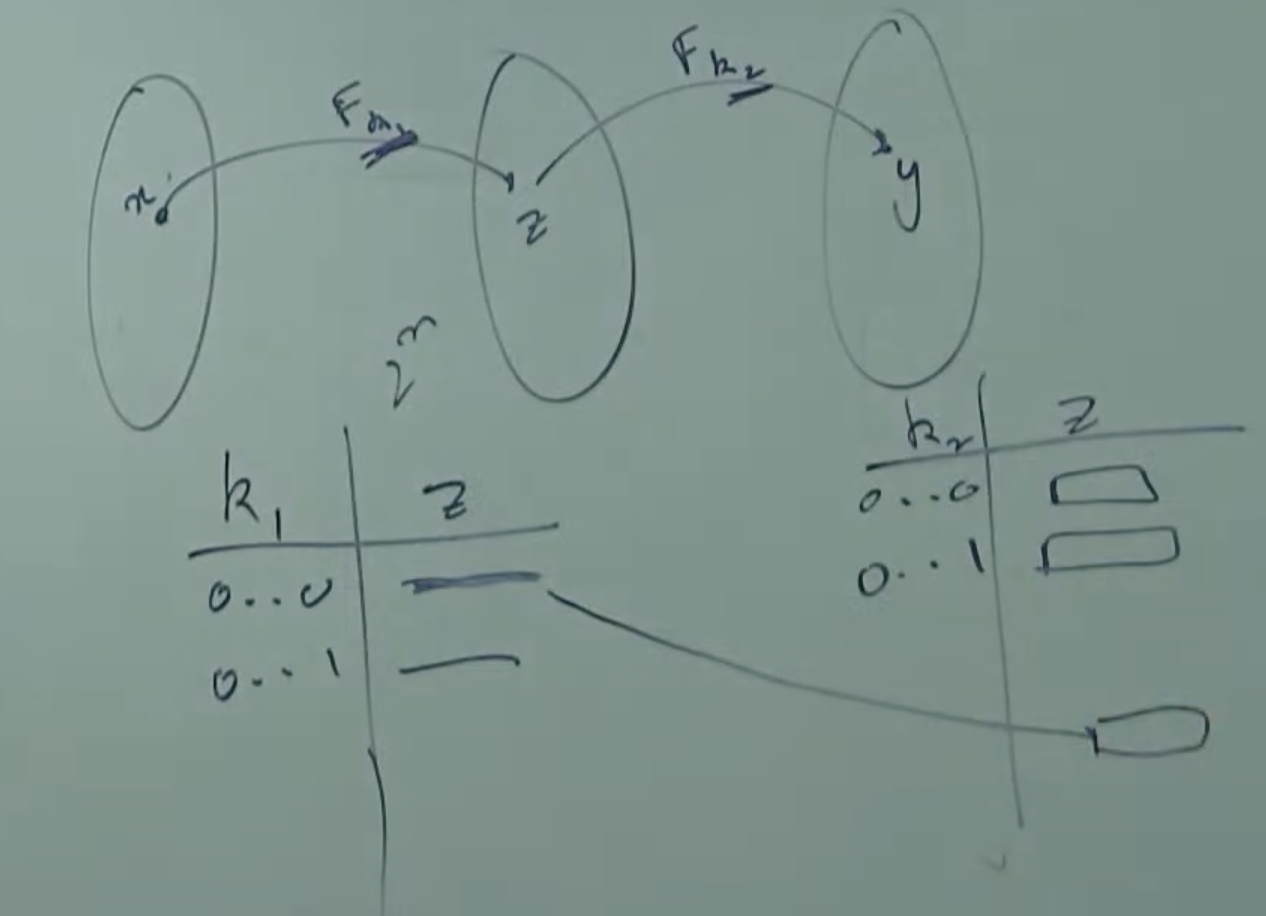 F_k₁ F_k₂
x z y
2ⁿ
k₁ z
0..0
0...1
k₂ z
0...0
0...1